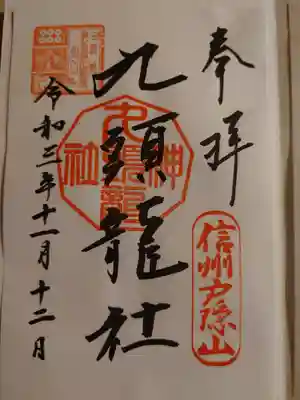 奉拝
信州戸隠山
九頭龍社
九頭龍神社
令和三年十一月十二日